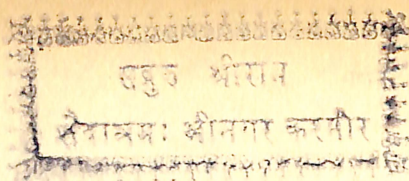 सद्गुरु श्रीराम
सेवाश्रमः श्रीनगर कश्मीर